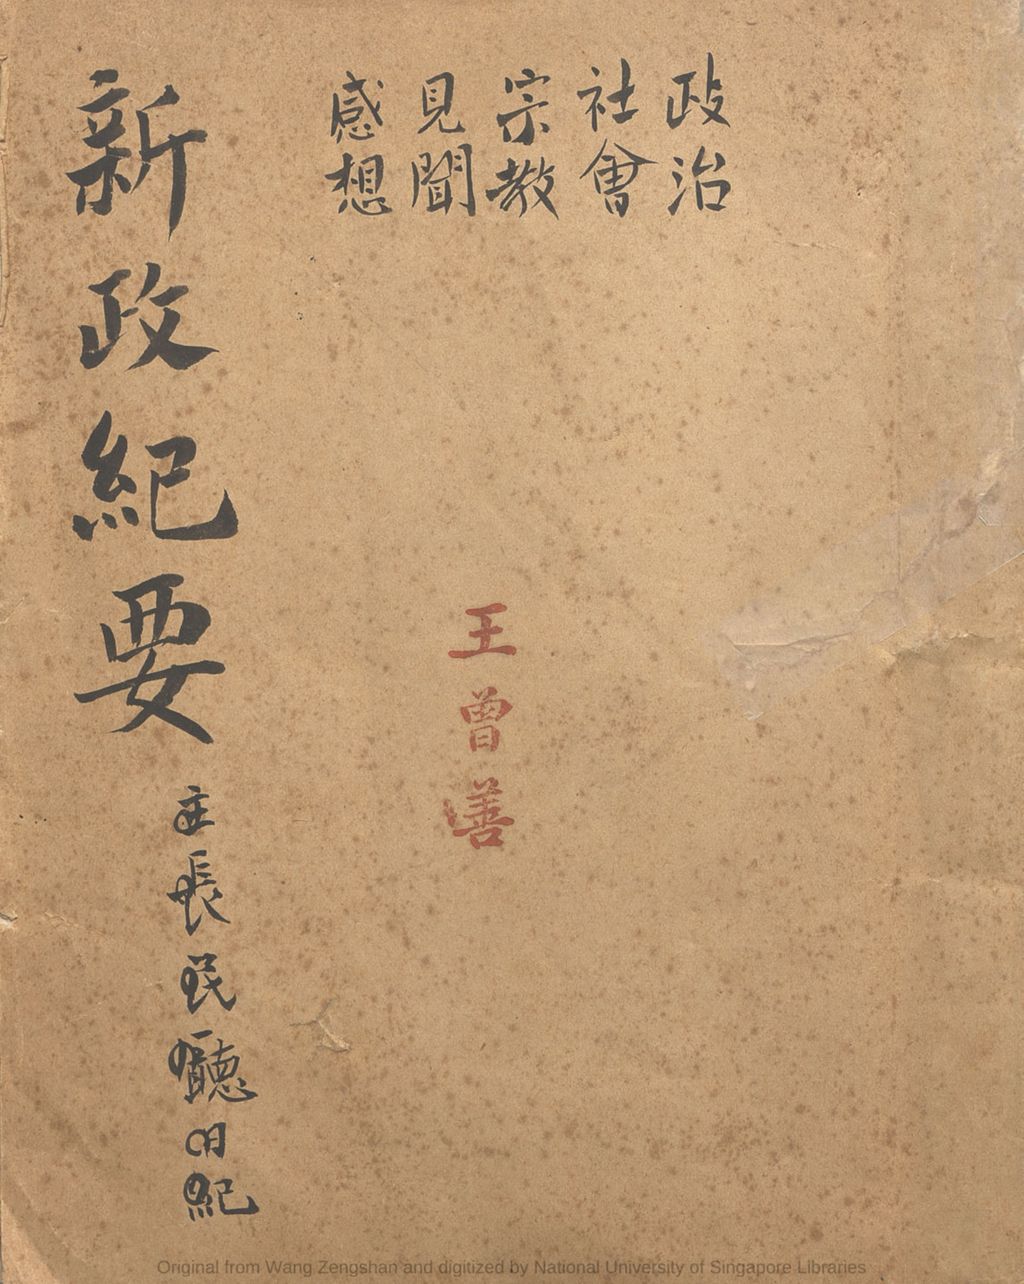 政治
社會
宗教
見聞
感想
王曾善
新政紀要
主長民廳日紀
Original from Wang Zengshan and digitized by National University of Singapore Libraries